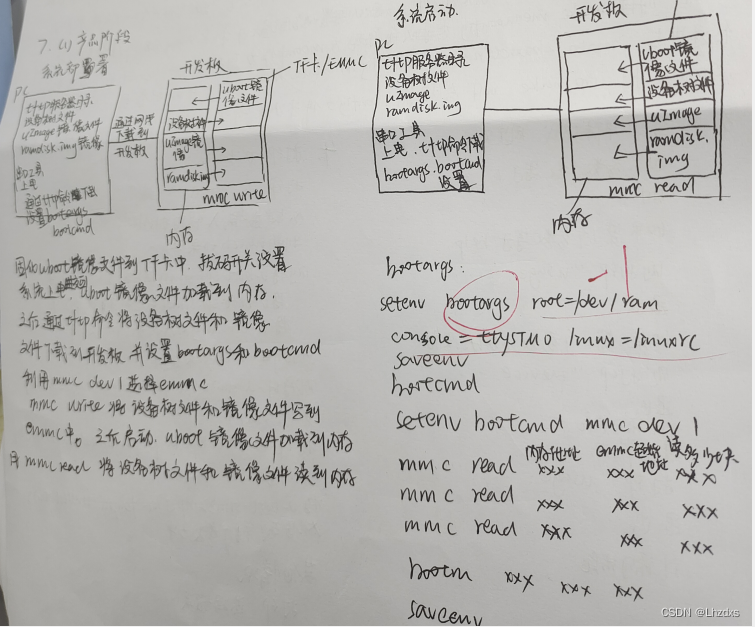 7. (1) 产品阶段
系统部署
PC
开发板
TF卡/EMMC
tftp服务器目录
设备树文件
uImage镜像文件
ramdisk.img镜像
串口工具
上电
通过tftp命令下载
设置bootargs
bootcmd
通过网络
下载到
开发板
uboot镜像文件
设备树文件
uImage镜像
ramdisk.img
mmc write
内存
固化uboot镜像文件到TF卡中,拨码开关设置
系统上电,uboot镜像文件加载到内存.
之后通过tftp命令将设备树文件和镜像
文件下载到开发板 并设置bootargs和bootcmd
利用mmc dev 1 选择emmc
mmc write 将设备树文件和镜像文件写到
emmc中。之后启动.uboot镜像文件加载到内存
用mmc read 将设备树文件和镜像文件读到内存
系统启动.
PC
开发板
tftp服务器目录
设备树文件
uImage
ramdisk.img
串口工具
上电.tftp命令下载
bootargs.bootcmd
设置
uboot镜像文件
设备树文件
uImage
ramdisk.img
mmc read
内存
bootargs:
setenv bootargs root=/dev/ram
console = ttySTM0 linux=/linuxrc
saveenv
bootcmd
setenv bootcmd mmc dev 1
mmc read 内存地址 emmc起始地址 读多少块
xxx xxx xxx
mmc read xxx xxx xxx
mmc read xxx xxx xxx
bootm xxx xxx xxx
saveenv
CSDN @Lhzdxs